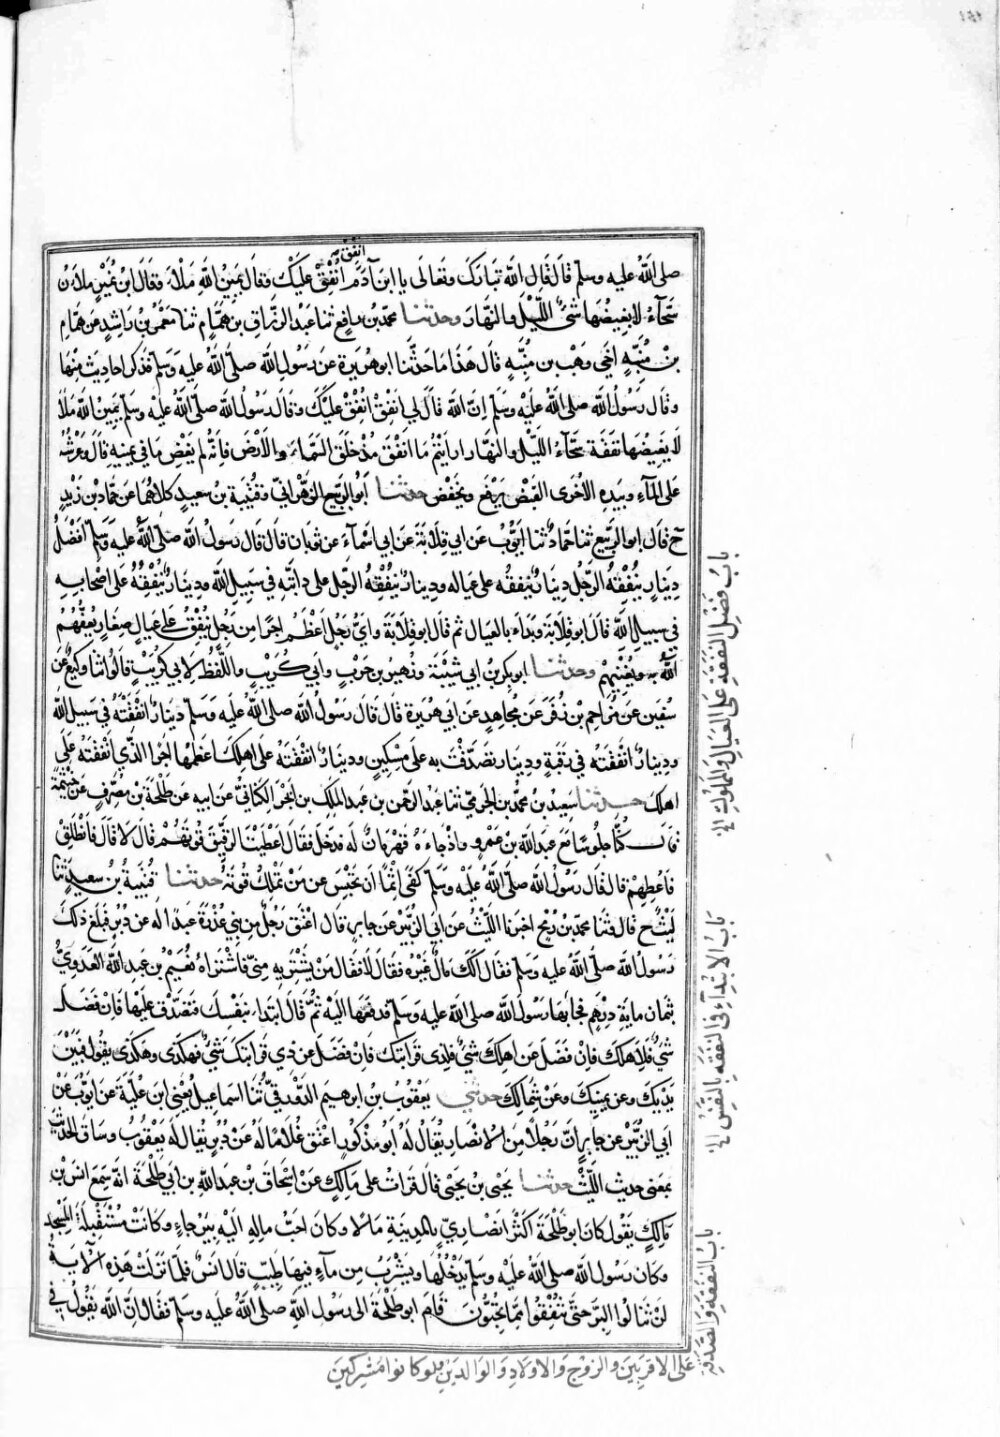 انفق
صلى الله عليه وسلم قال قال الله تبارك وتعالى يا ابن آدم أنفق أنفق عليك وقال يمين الله ملأى وقال ابن نمير ملآن
سحاء لا يغيضها شيء الليل والنهار وحدثنا محمد بن رافع ثنا عبد الرزاق بن همام ثنا معمر بن راشد عن همام
بن منبه اخي وهب بن منبه قال هذا ما حدثنا ابو هريرة عن رسول الله صلى الله عليه وسلم فذكر احاديث منها
وقال رسول الله صلى الله عليه وسلم إن الله قال لي انفق انفق عليك وقال رسول الله صلى الله عليه وسلم يمين الله ملأى
لا يغيضها نفقة سحاء الليل والنهار ارايتم ما انفق مذ خلق السماء والارض فانه لم يغض ما في يمينه قال وعرشه
على الماء وبيده الأخرى القبض يرفع ويخفض حدثنا ابو الربيع الزهراني وقتيبة بن سعيد كلاهما عن حماد بن زيد
ح قال ابو الربيع ثنا حماد ثنا ايوب عن ابي قلابة عن ابي اسماء عن ثوبان قال قال رسول الله صلى الله عليه وسلم افضل
دينار ينفقه الرجل دينار ينفقه على عياله ودينار ينفقه الرجل على دابته في سبيل الله ودينار ينفقه على اصحابه
في سبيل الله قال ابو قلابة وبداء بالعيال ثم قال ابو قلابة واي رجل اعظم اجرا من رجل ينفق على عيال صغار يعفهم
الله به ويغنيهم وحدثنا ابو بكر بن ابي شيبة وزهير بن حرب وابي كريب واللفظ لابي كريب قالوا ثنا وكيع عن
سفين عن مزاحم بن زفر عن مجاهد عن ابي هريرة قال قال رسول الله صلى الله عليه وسلم دينار انفقته في سبيل الله
ودينار انفقته في رقبة ودينار تصدقت به على مسكين ودينار انفقته على اهلك اعظمها اجرا الذي انفقته على
اهلك حدثنا سعيد بن محمد بن الجرمي ثنا عبد الرحمن بن عبد الملك بن ابجر الكناني عن ابيه عن طلحة بن مصرف عن خيثمة
قال كنا جلوسا مع عبد الله بن عمرو اذ جاءه قهرمان له فدخل فقال اعطيت الرقيق قوتهم قال لا قال فانطلق
فاعطهم قال قال رسول الله صلى الله عليه وسلم كفى اثما ان تحبس عن من تملك قوته حدثنا قتيبة بن سعيد ثنا
ليث ح قال وثنا محمد بن رمح اخبرنا الليث عن ابي الزبير عن جابر قال اعتق رجل من بني عذرة عبدا له عن دبر فبلغ ذلك
رسول الله صلى الله عليه وسلم فقال الك مال غيره فقال لا فقال من يشتريه مني فاشتراه نعيم بن عبد الله العدوي
بثمان مائة درهم فجاء بها رسول الله صلى الله عليه وسلم فدفعها اليه ثم قال ابتدا بنفسك فتصدق عليها فان فضل
شيء فلاهلك فان فضل عن اهلك شيء فلذي قرابتك فان فضل عن ذي قرابتك شيء فهكذى وهكذى يقول فبين
يديك وعن يمينك وعن شمالك حدثني يعقوب بن ابرهيم الدورقي ثنا اسماعيل يعني ابن علية عن ايوب عن
ابي الزبير عن جابر ان رجلا من الانصار يقال له ابو مذكور اعتق غلاما له عن دبر يقال له يعقوب وساق الحديث
بمعنى حديث الليث حدثنا يحيى بن يحيى قال قرات على مالك عن اسحاق بن عبد الله بن ابي طلحة انه سمع انس بن
مالك يقول كان ابو طلحة اكثر انصاري بالمدينة مالا وكان احب ماله اليه بيرحاء وكانت مستقبلة المسجد
وكان رسول الله صلى الله عليه وسلم يدخلها ويشرب من ماء فيها طيب قال انس فلما نزلت هذه الآية
لن تنالوا البر حتى تنفقوا مما تحبون قام ابو طلحة الى رسول الله صلى الله عليه وسلم فقال ان الله يقول في
باب فضل النفقة على العيال والمملوك
باب الابتداء في النفقة بالنفس
باب النفقة والصدقة
على الاقربين والزوج والاولاد والوالدين ولو كانوا مشركين